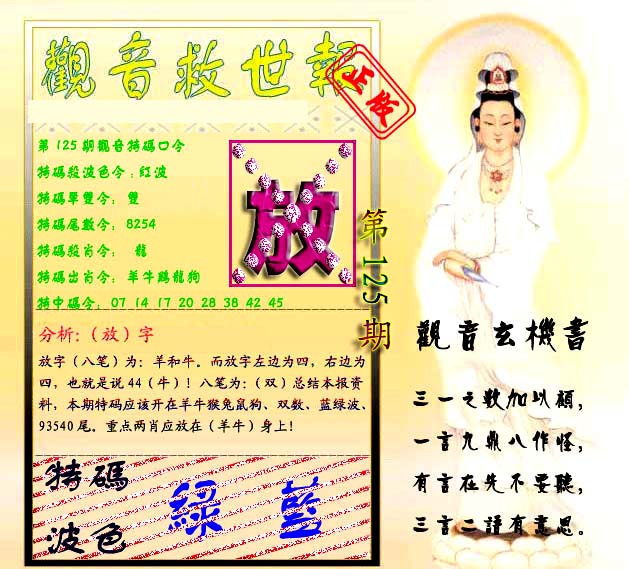 觀音救世報
正版
第125期觀音特碼口令
特碼殺波色令：紅波
特碼單雙令： 雙
特碼尾數令： 8254
特碼殺肖令： 龍
特碼出肖令： 羊牛鷄龍狗
特中碼令： 07 14 17 20 28 38 42 45
放
第125期
分析：（放）字
放字（八笔）为：羊和牛。而放字左边为四，右边为
四，也就是说44（牛）！八笔为：（双）总结本报资
料，本期特码应该开在羊牛猴兔鼠狗、双数、蓝绿波、
93540尾。重点两肖应放在（羊牛）身上！
特碼
波色
綠 藍
觀音玄機書
三一之數加以顧，
一言九鼎八作怪，
有言在先不要聽，
三言二語有意思。